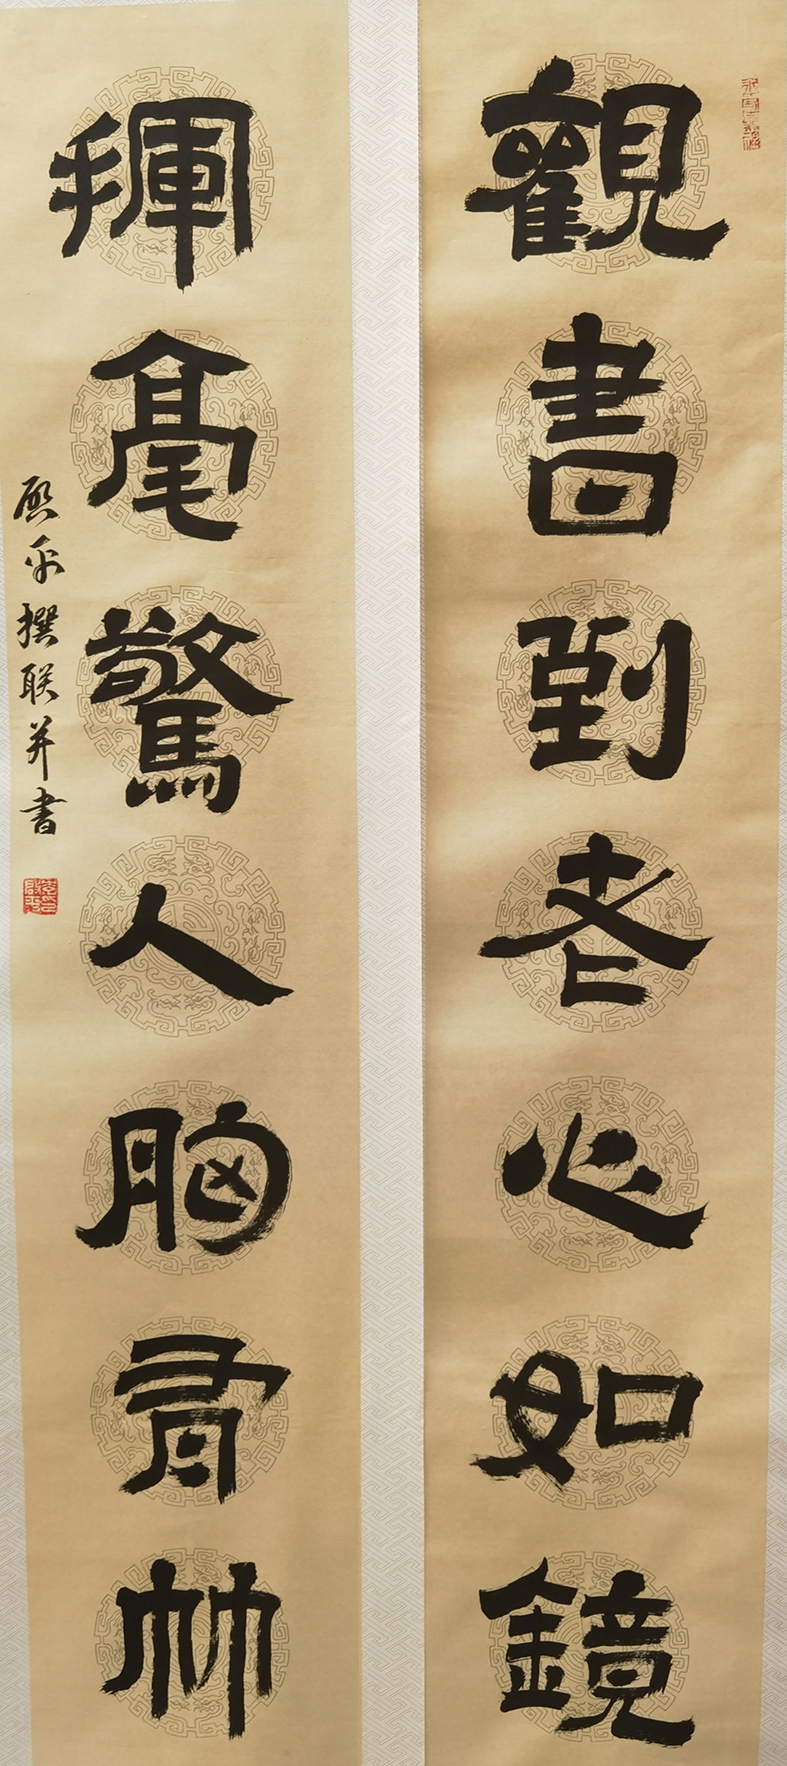 觀書到老心如鏡
揮毫驚人胸有竹
啟平撰联并书